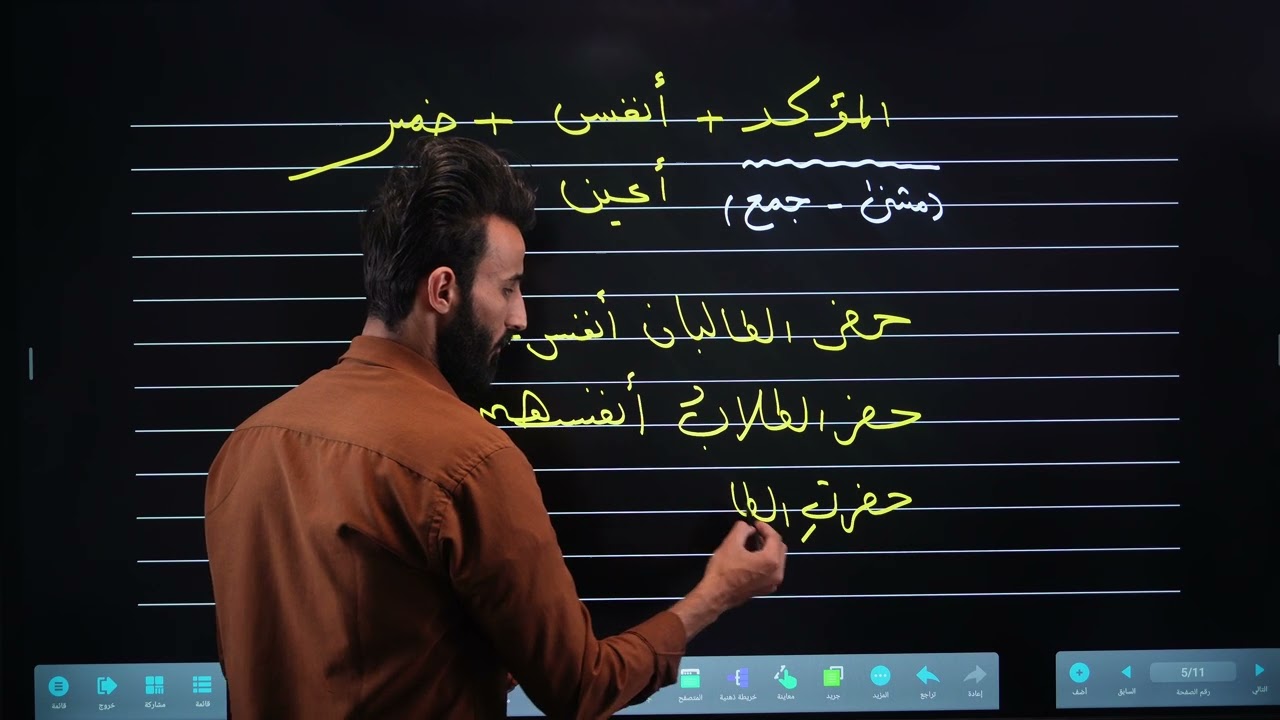 المؤكد + أنفس + ضمير
أعين
(مثنى - جمع)
حضر الطالبان أنفس
حضر الطلابُ أنفسهم
حضرتِ الطا
قائمة
خروج
مشاركة
قائمة
المتصفح
خريطة ذهنية
معاينة
جريد
المزيد
تراجع
إعادة
أضف
السابق
5/11
رقم الصفحة
التالي